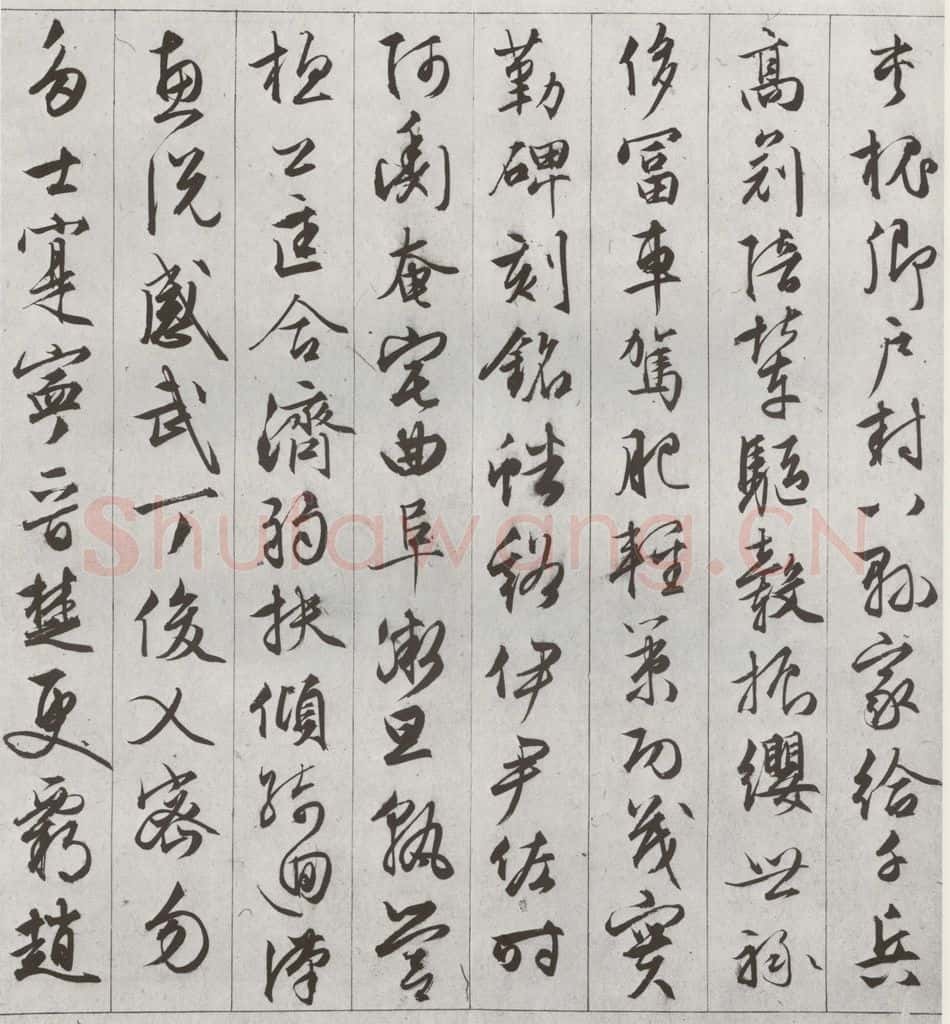 夹槐卿户封八縣家給千兵
高冠陪輦驅轂振纓世祿
侈富車駕肥輕策功茂實
勒碑刻銘磻谿伊尹佐時
阿衡奄宅曲阜微旦孰營
桓公匡合濟弱扶傾綺迴漢
惠說感武丁俊乂密勿
多士寔寧晉楚更霸趙
Shufawang.CN